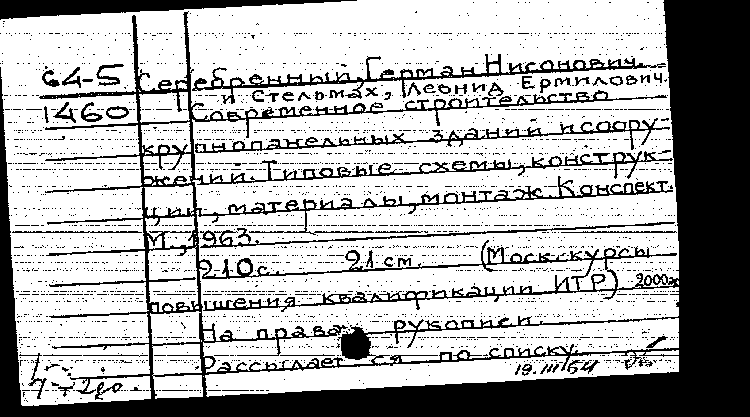 64-5 Серебренный, Герман Нисонович.
и Стельмах, Леонид Ермилович.
1460 Современное строительство
крупнопанельных зданий и соору-
жений. Типовые схемы, конструк-
ции, материалы, монтаж. Конспект.
М., 1963.
210 с. 21 см. (Моск. курсы
повышения квалификации ИТР) 2000э
На правах рукописи.
Рассылается по списку.
19.III 64